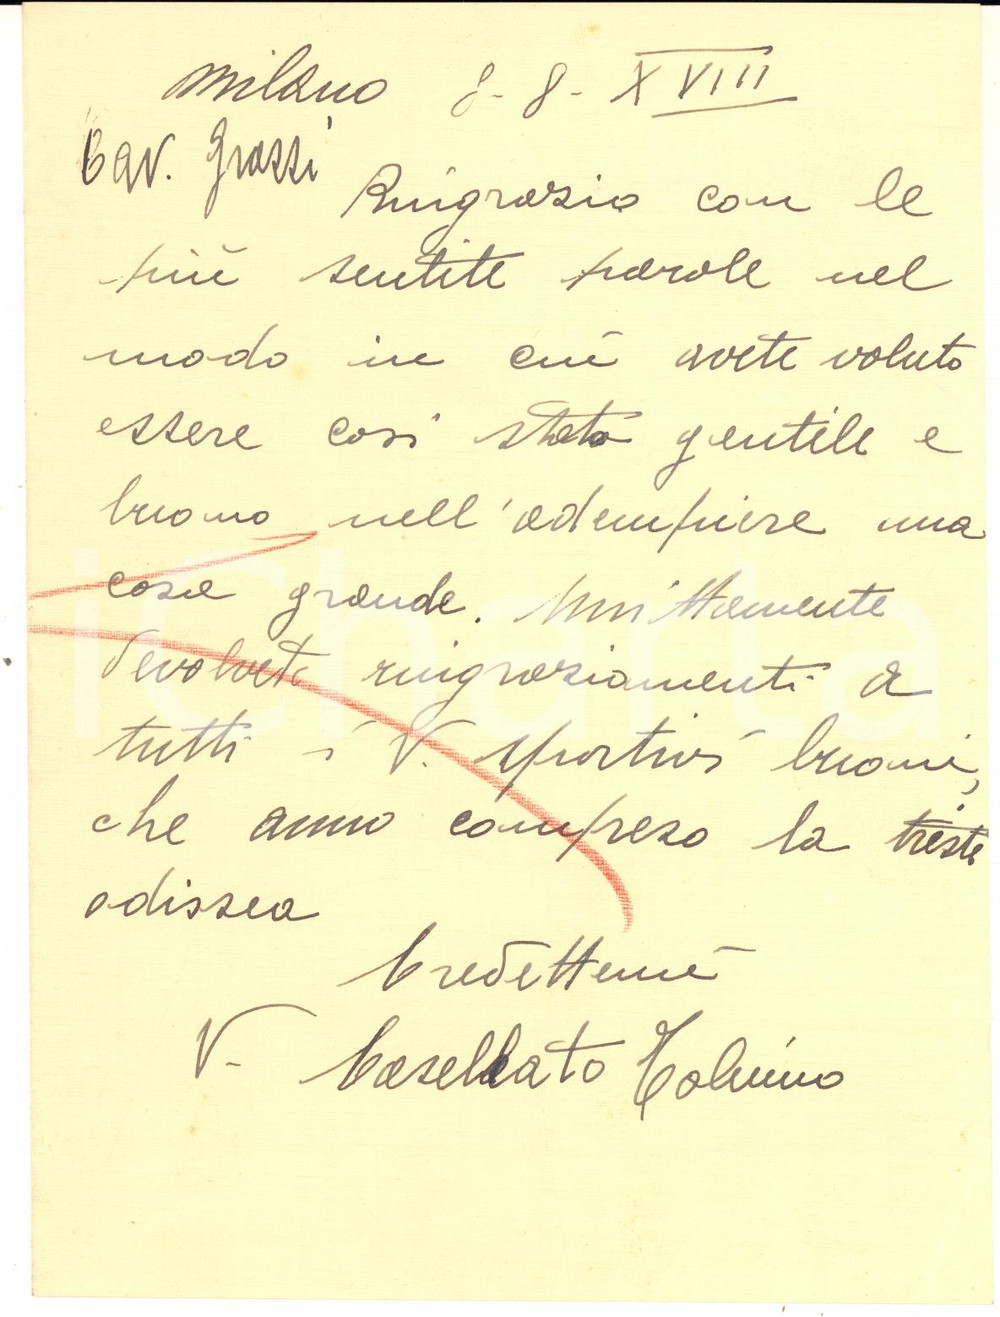 Milano 8-8-XVIII
Cav. Grassi
Ringrazio con le
più sentite parole nel
modo in cui avete voluto
essere così stato gentile e
buono nell'adempiere una
cosa grande. Unittamente
devolvete ringraziamenti a
tutti i V. sportivi buoni,
che anno compreso la triste
odissea
Credettemi
V- Casellato
iCharta